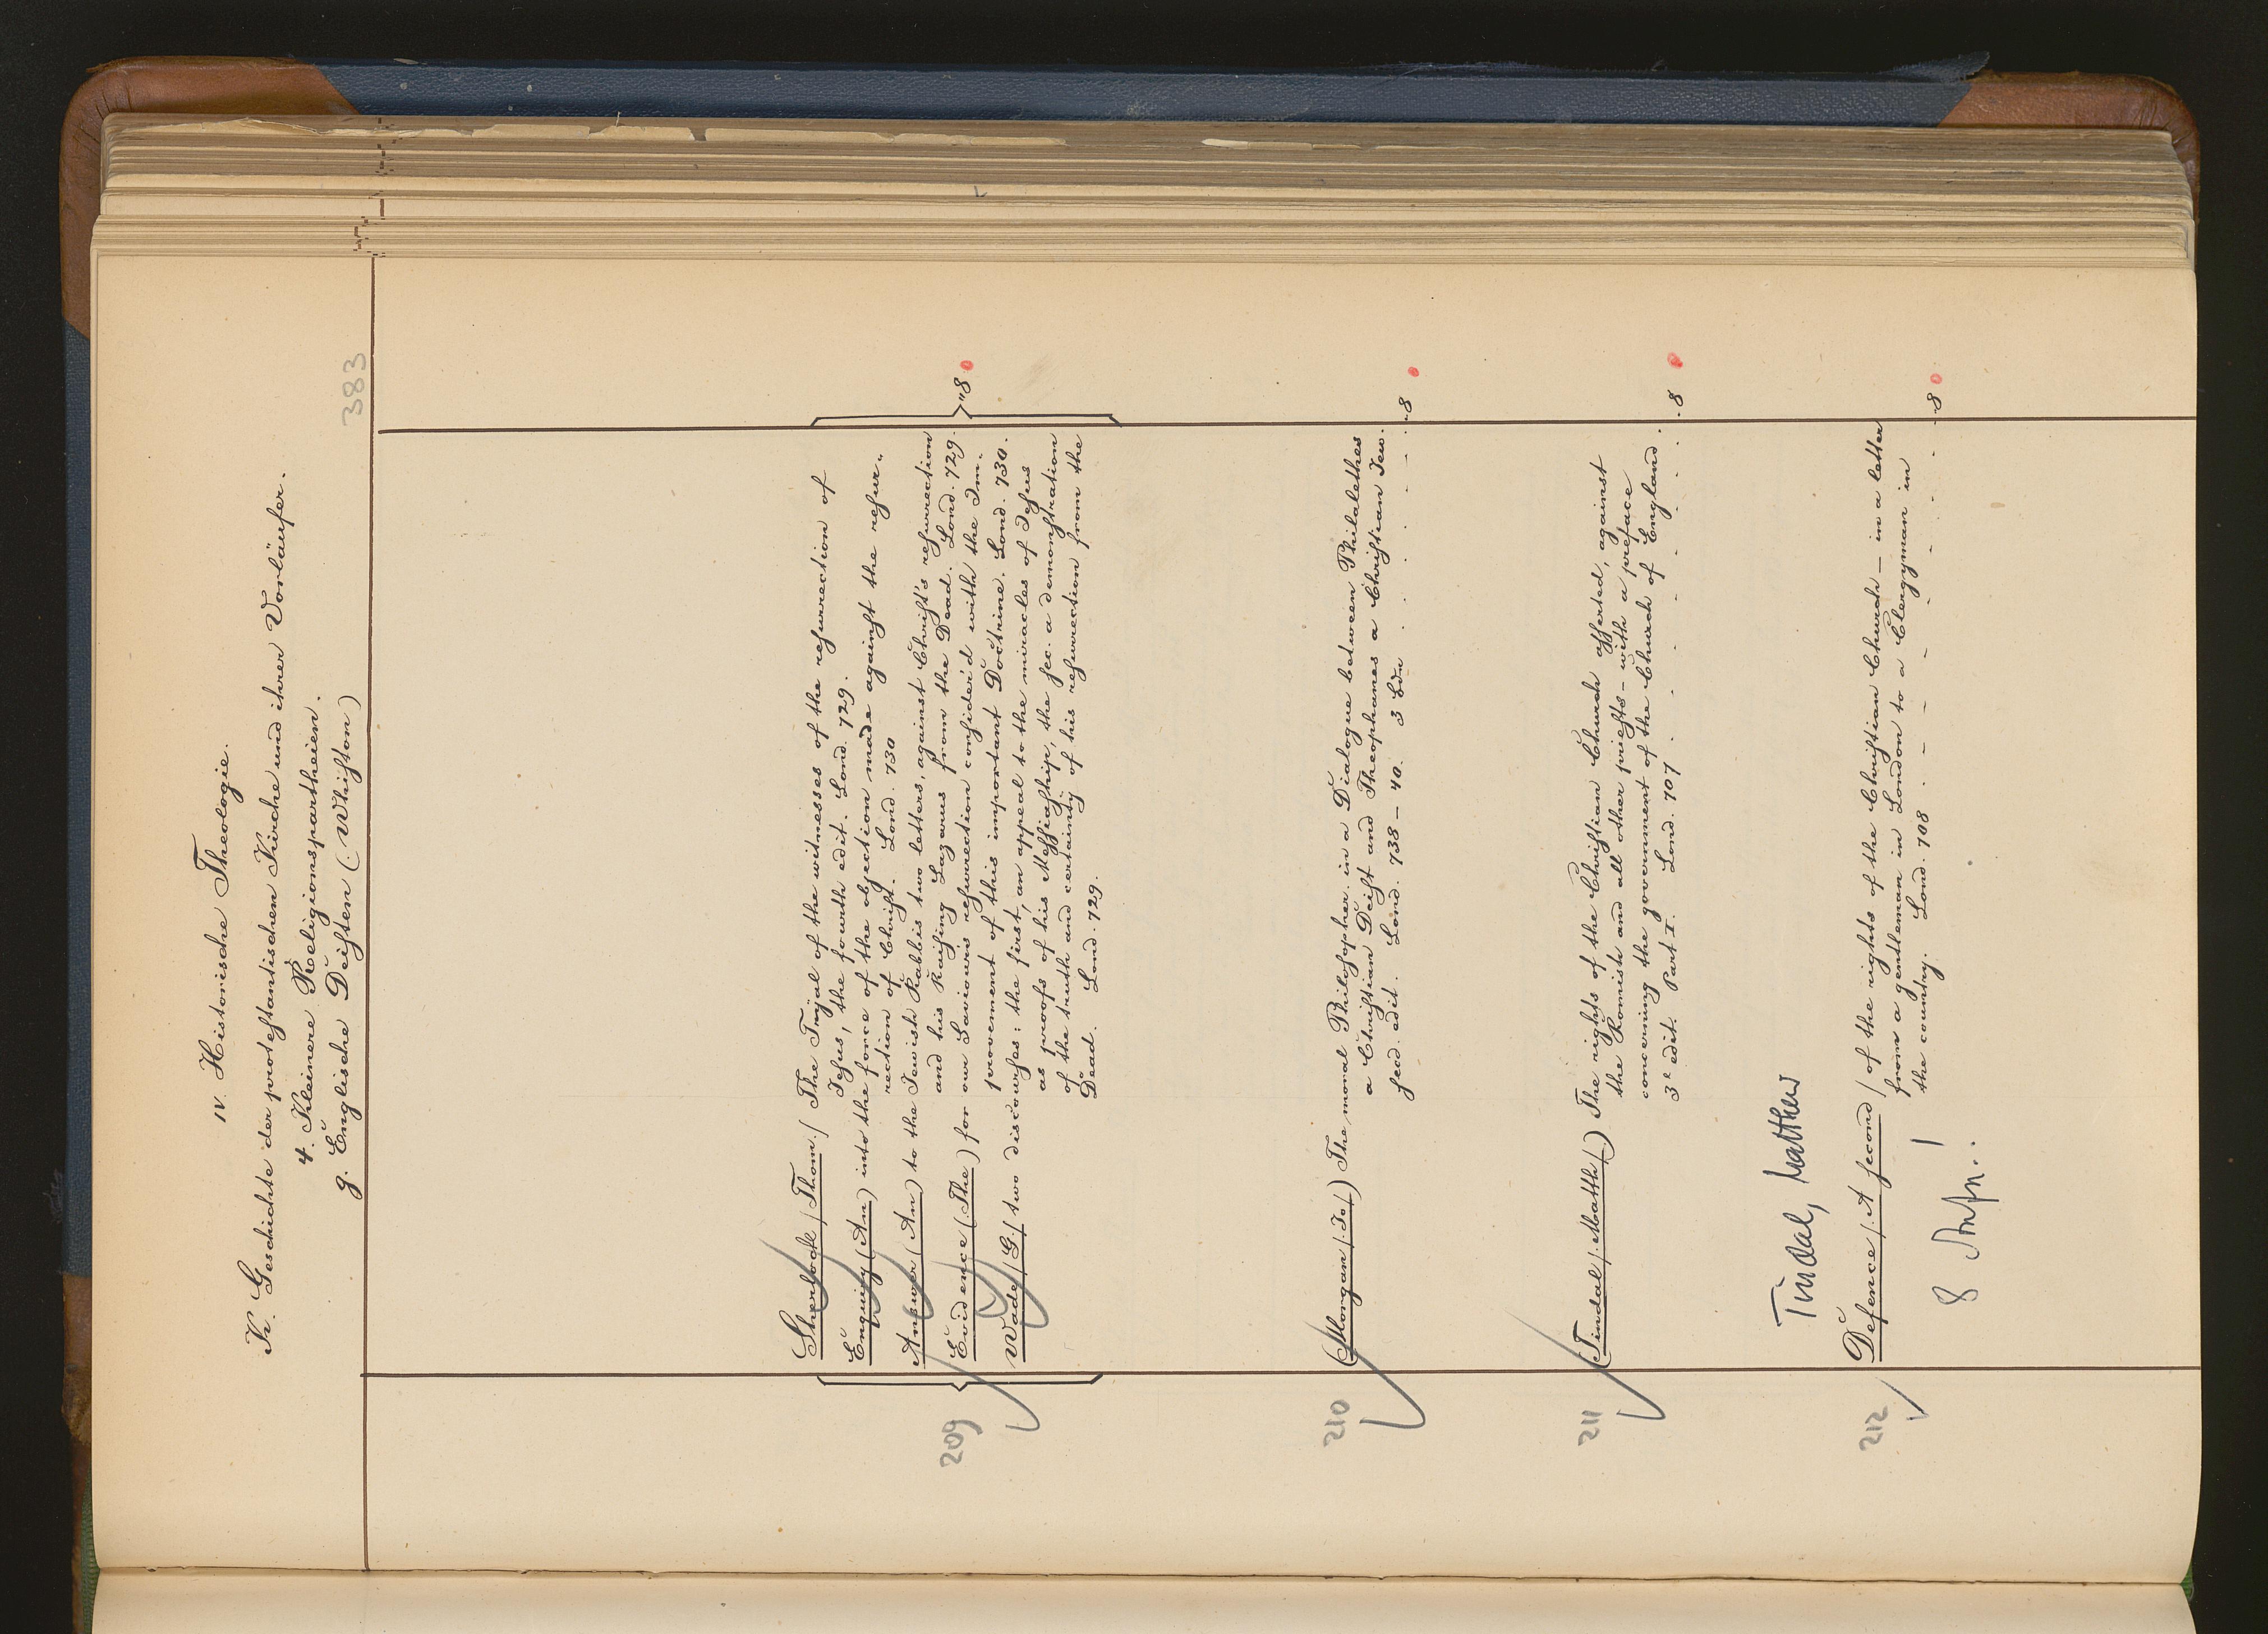 IV. Historische Theologie.
K. Geschichte der protestantischen Kirche und ihrer Vorläufer.
4. Kleinere Religionspartheien.
g. Englische Deisten (Whiston)
383
Sherlock (Thom.) The Tryal of the witnesses of the resurrection of
Jesus, the fourth edit. Lond. 729.
Enquiry (An) into the force of the objection made against the resur„
rection of Christ. Lond. 730
Answer (An) to the Jewish Rabbis two letters, against Christ's resurrection
and his Raising Lazarus from the Dead. Lond. 729.
209
"8
Evidence (The) for our Saviours resurrection consider'd with the Im„
provement of this important Doctrine. Lond. 730.
Wade (G.) two discourses: the first, an appeal to the miracles of Jesus
as proofs of his Messiaship, the sec. a demonstration
of the truth and certainty of his resurrection from the
Dead. Lond. 729.
210
(Morgan (.To.)) The moral Philosopher in a Dialogue between Philalethes
a Christian Deist and Theophanes a Christian Jew.
secd. edit. Lond. 738 – 40. 3 Bdn - 8
211
(Tindal (.Matth.)) The rights of the Christian Church asserted, against
the Romish and all other priests – with a preface
concerning the government of the Church of England.
3e edit. Part I. Lond. 707. - 8
Tindal, Matthew
212
Defence (.A second) of the rights of the Christian Church – in a letter
from a gentleman in London to a Clergyman in
the country. Lond. 708. - 8
8